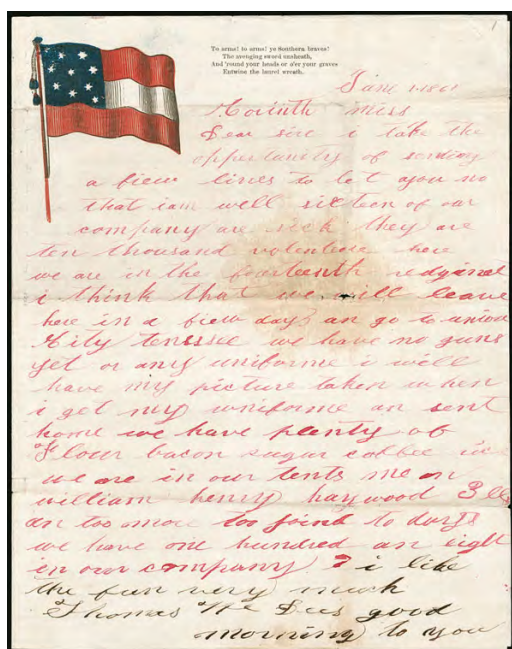 1
To arms! to arms! ye Southern braves!
The avenging sword unsheath,
And 'round your heads or o'er your graves
Entwine the laurel wreath.
June
Corinth miss
Dear sire i take the
opportunity of sending
a fiew lines to let you no
that iam well sixteen of our
company are sick they are
ten thousand here
we are in the fourteenth
i think that we will leave
here in a fiew days an go to union
City we have no guns
yet or any uniforme i will
have my picture taken when
i get my uniforme an sent
home we have plenty of
Flour bacon sugar coffee
we are in our tents me an
william henry haywood
an too more too joind to days
we have one hundred an eight
in our company ? i like
the fun very much
Thomas good
morning to you